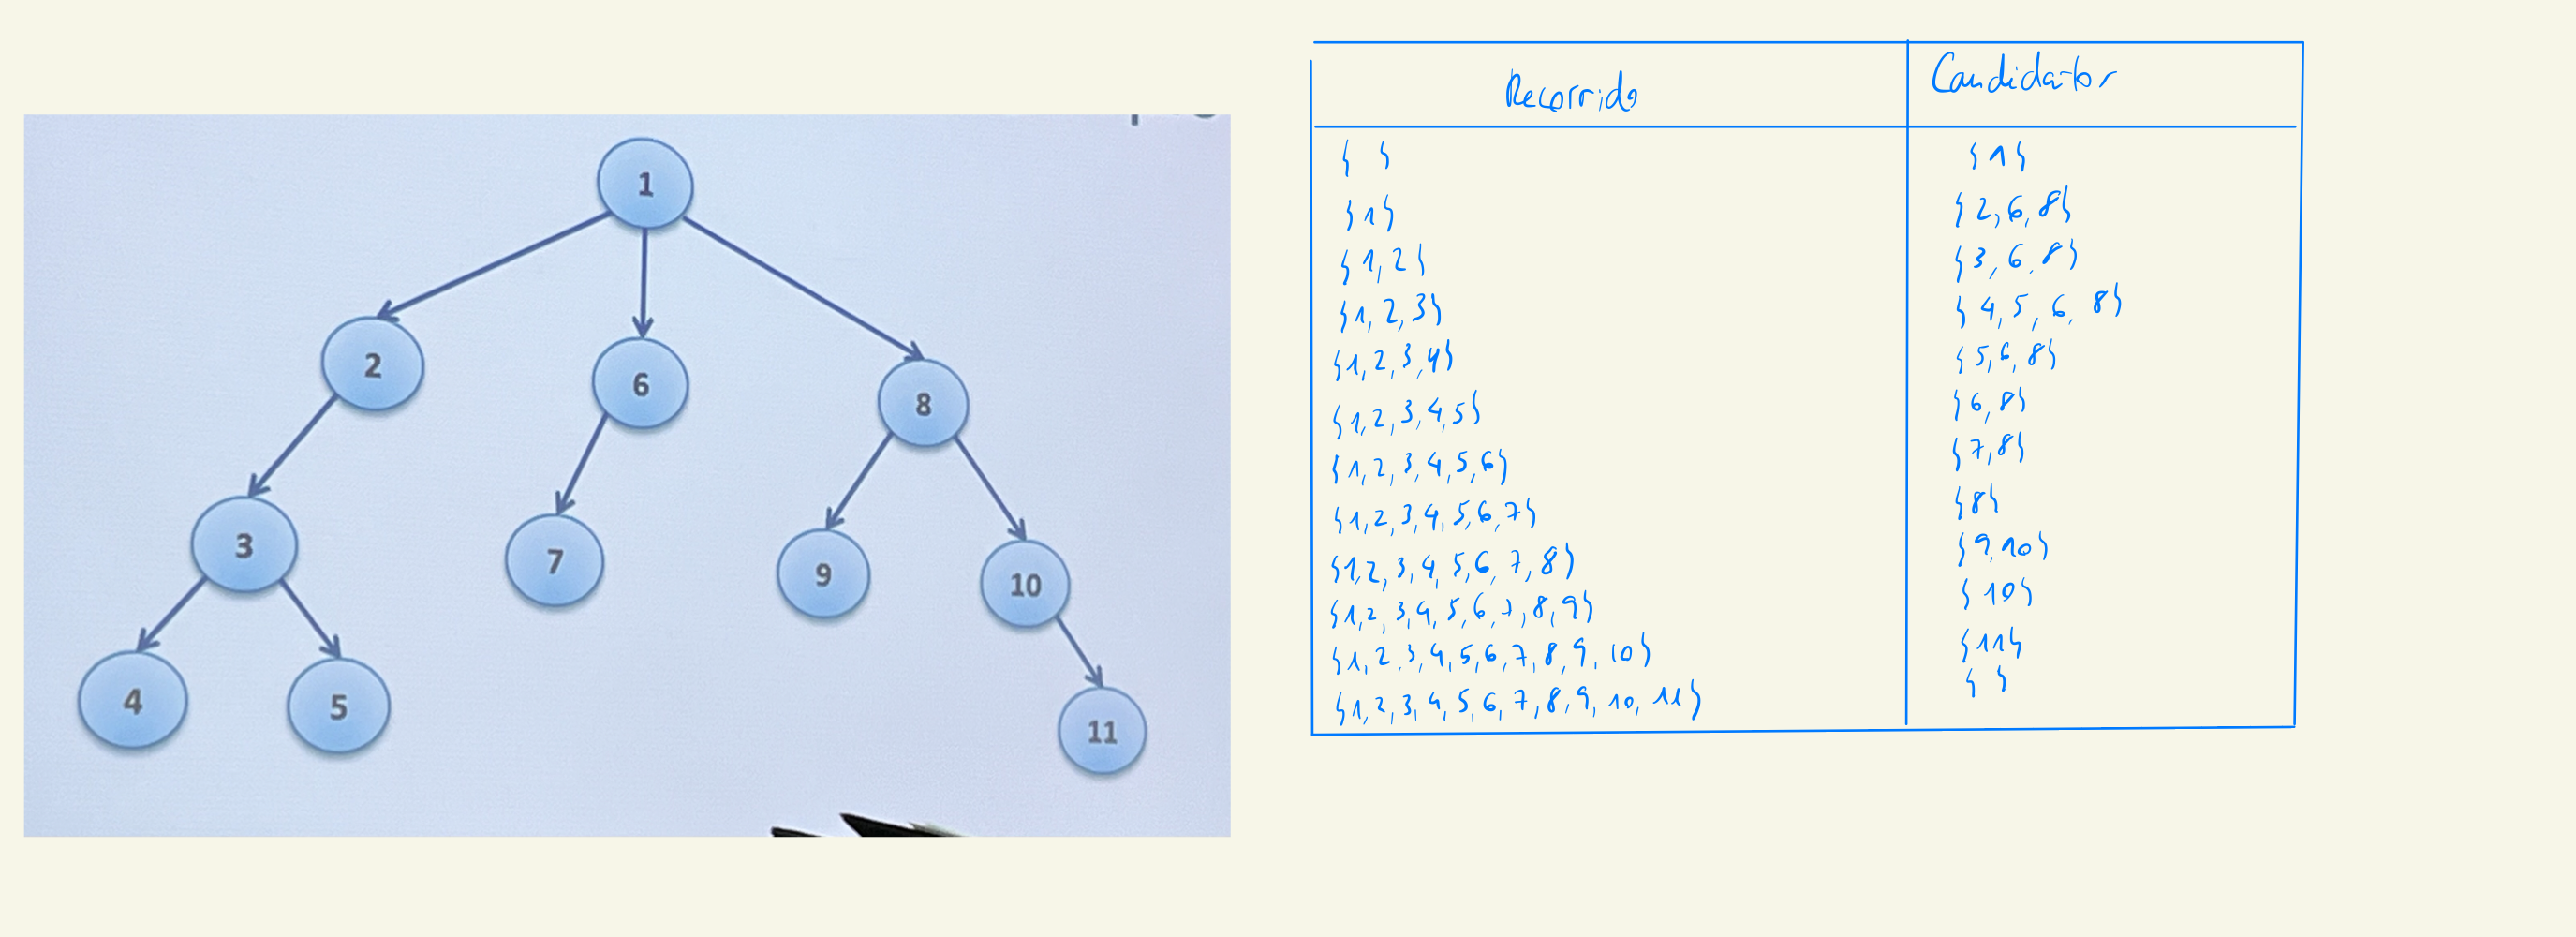 1
2
6
8
3
7
9
10
4
5
11
Recorrido
Candidatos
{ }
{1}
{1}
{2,6,8}
{1,2}
{3,6,8}
{1,2,3}
{4,5,6,8}
{1,2,3,4}
{5,6,8}
{1,2,3,4,5}
{6,8}
{1,2,3,4,5,6}
{7,8}
{1,2,3,4,5,6,7}
{8}
{1,2,3,4,5,6,7,8}
{9,10}
{1,2,3,4,5,6,7,8,9}
{10}
{1,2,3,4,5,6,7,8,9,10}
{11}
{1,2,3,4,5,6,7,8,9,10,11}
{ }